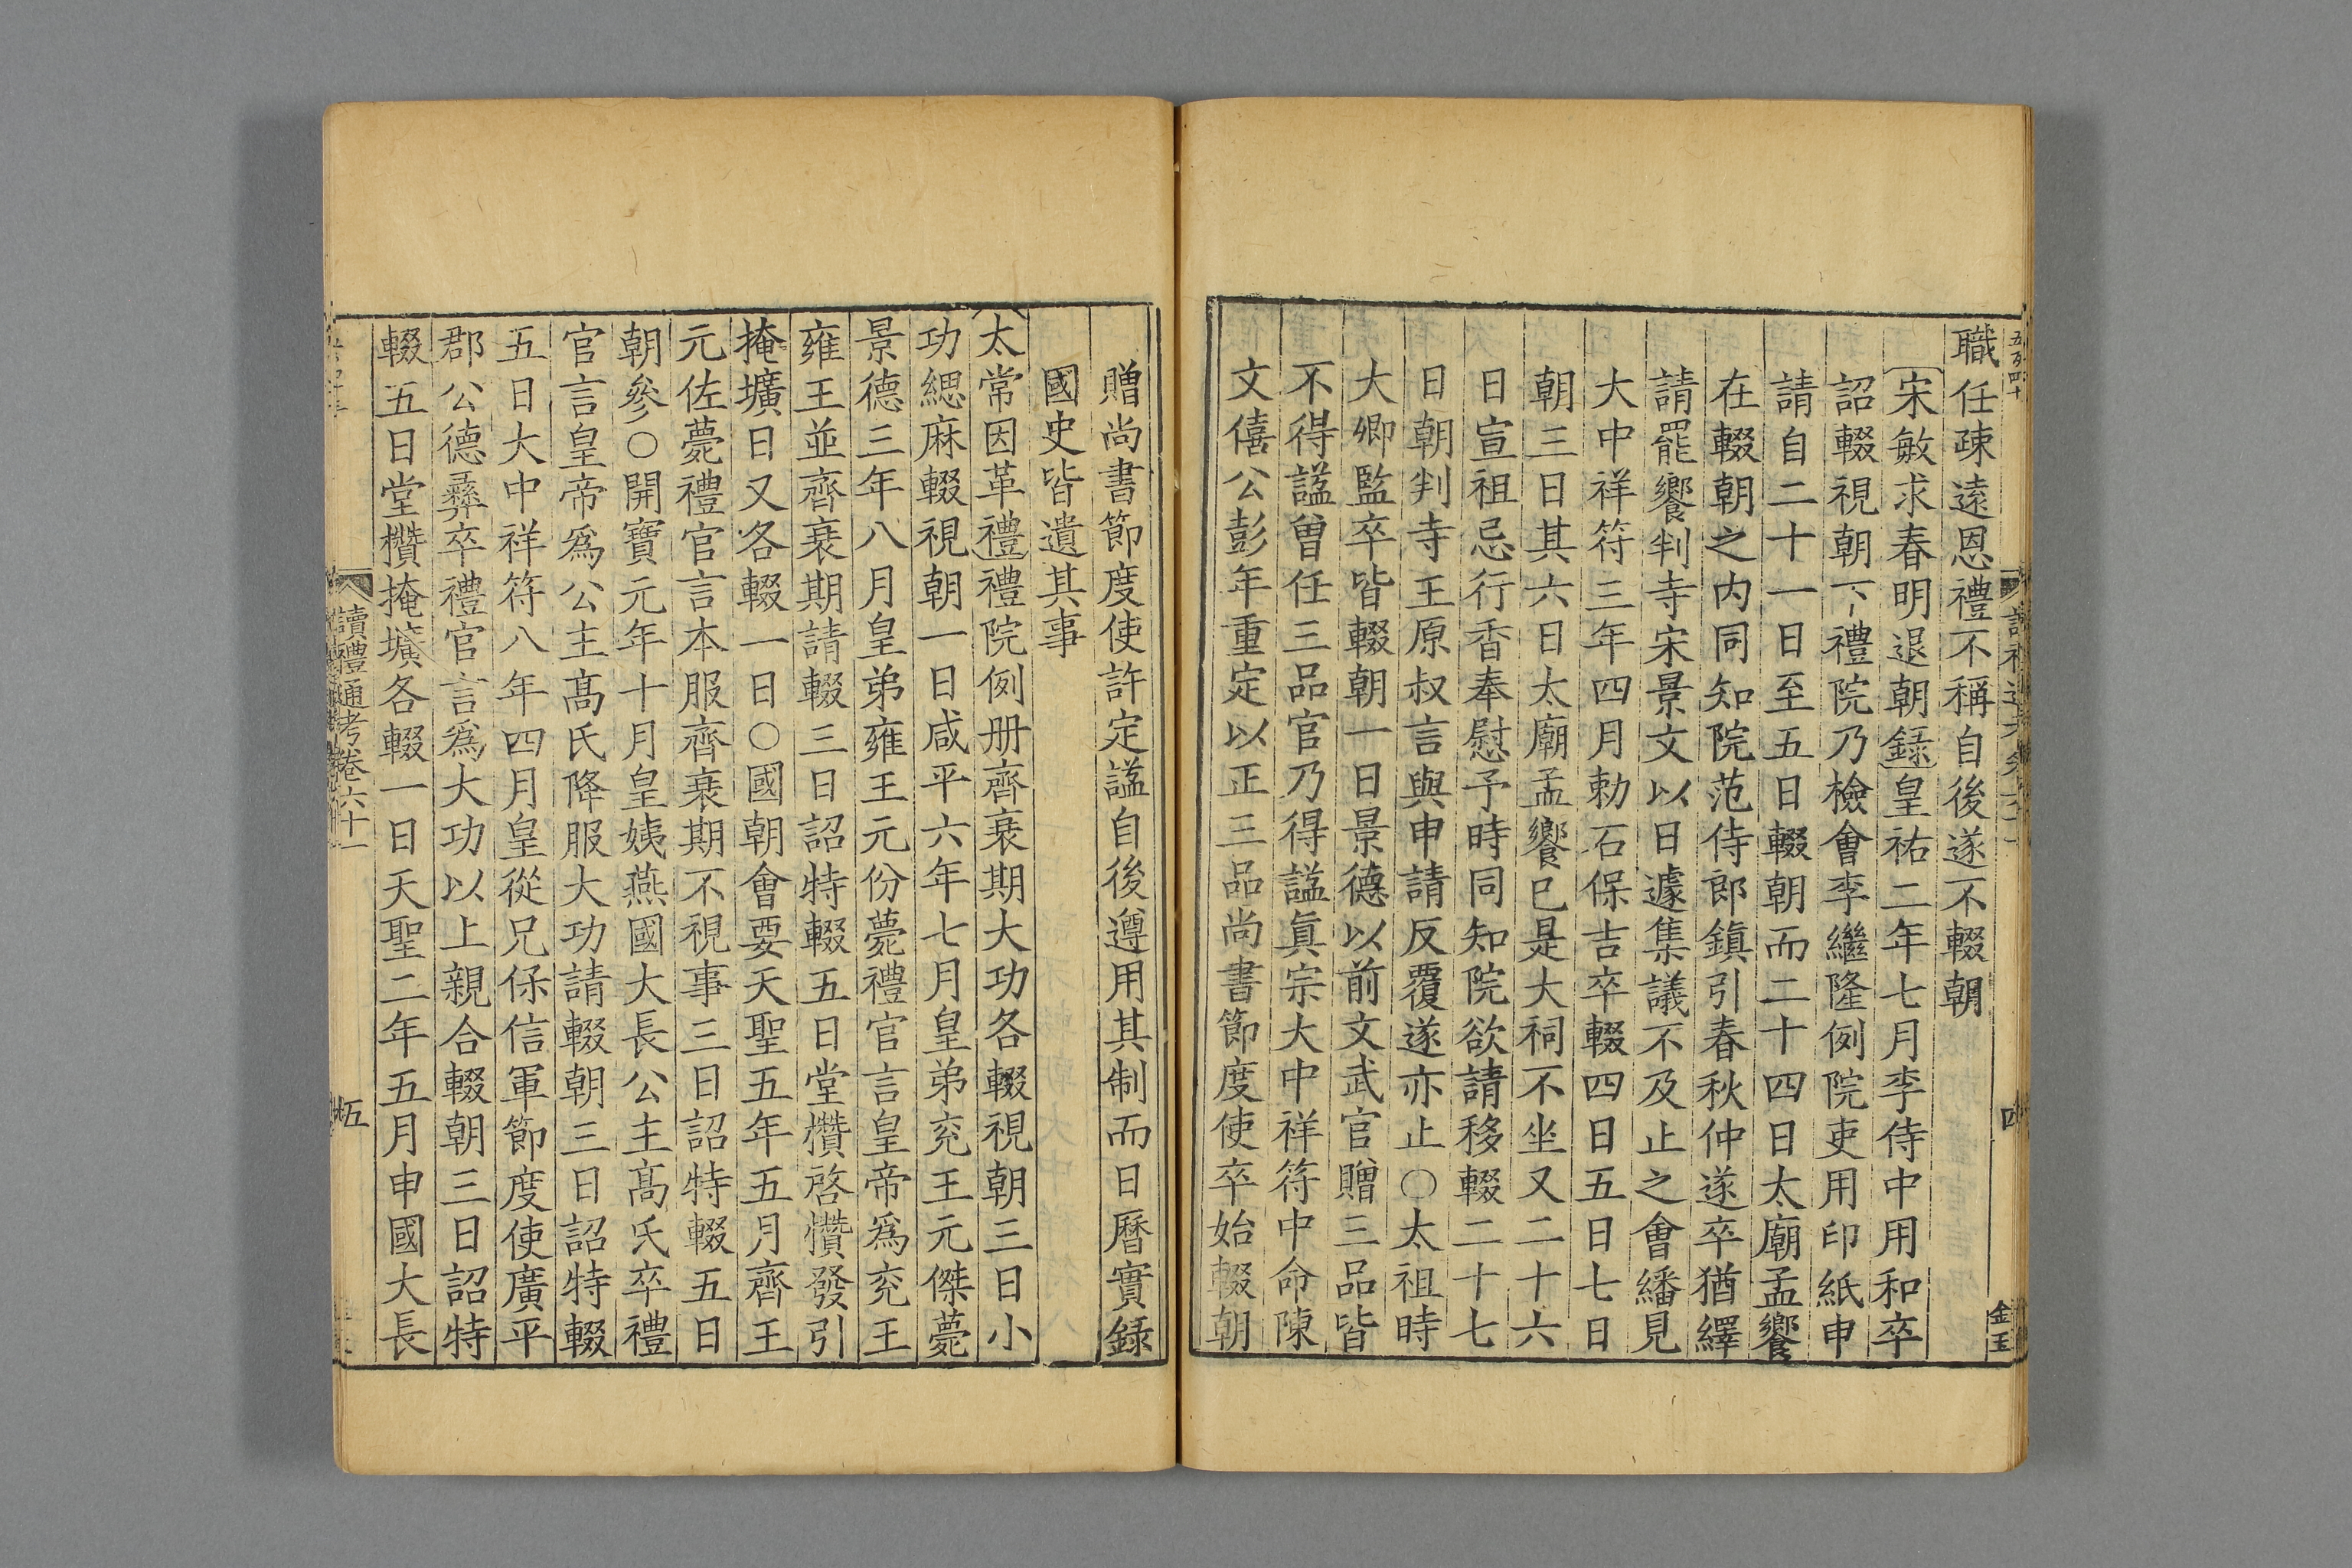 職任疎遠恩禮不稱自後遂不輟朝
宋敏求春明退朝録皇祐二年七月李侍中用和卒
詔輟視朝下禮院乃檢會李繼隆例院吏用印紙申
請自二十一日至五日輟朝而二十四日太廟孟饗
在輟朝之内同知院范侍郎鎮引春秋仲遂卒猶繹
請罷饗判寺宋景文以日遽集議不及止之會繙見
大中祥符三年四月勅石保吉卒輟四日五日七日
朝三日其六日太廟孟饗已是大祠不坐又二十六
日宣祖忌行香奉慰予時同知院欲請移輟二十七
日朝判寺王原叔言與申請反覆遂亦止○太祖時
大卿監卒皆輟朝一日景德以前文武官贈三品皆
不得諡曾任三品官乃得諡眞宗大中祥符中命陳
文僖公彭年重定以正三品尚書節度使卒始輟朝
四
金玉
贈尚書節度使許定諡自後遵用其制而日曆實録
國史皆遺其事
太常因革禮禮院例册齊衰期大功各輟視朝三日小
功緦麻輟視朝一日咸平六年七月皇弟兖王元傑薨
景德三年八月皇弟雍王元份薨禮官言皇帝爲兖王
雍王並齊衰期請輟三日詔特輟五日堂欑啓欑發引
掩壙日又各輟一日○國朝會要天聖五年五月齊王
元佐薨禮官言本服齊衰期不視事三日詔特輟五日
朝參○開寶元年十月皇姨燕國大長公主高氏卒禮
官言皇帝爲公主高氏降服大功請輟朝三日詔特輟
五日大中祥符八年四月皇從兄保信軍節度使廣平
郡公德彝卒禮官言爲大功以上親合輟朝三日詔特
輟五日堂欑掩壙各輟一日天聖二年五月申國大長
讀禮通考卷六十一
五